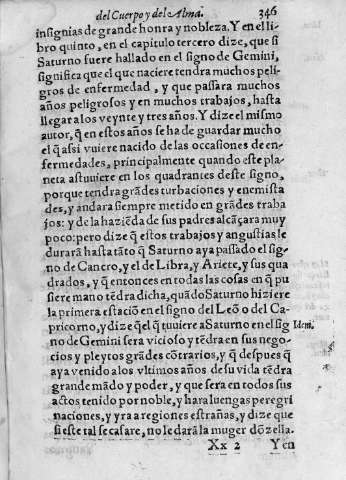 del Cuerpo y del Alma. 346
insignias de grande honra y nobleza. Y en el li
bro quinto, en el capitulo tercero dize, que si
Saturno fuere hallado en el signo de Gemini,
significa que el que naciere tendra muchos peli
gros de enfermedad, y que passara muchos
años peligrosos y en muchos trabajos, hasta
llegar alos veynte y tres años. Y dize el mismo
autor, q̃ en estos años se ha de guardar mucho
el q̃ assi vuiere nacido de las occasiones de en-
fermedades, principalmente quando este pla-
neta astuuiere en los quadrantes deste signo,
porque tendra grãdes turbaciones y enemista
des, y andara siempre metido en grãdes traba
jos: y de la haziẽda de sus padres alcãçara muy
poco: pero dize q̃ estos trabajos y angustias le
durarã hasta tãto q̃ Saturno aya passado el sig-
no de Cancro, y el de Libra, y Ariete, y sus qua
drados, y q̃ entonces en todas las cosas en q̃ pu
siere mano tẽdra dicha, quãdo Saturno hiziere
la primera estaciõ en el signo del Leõ o del Ca-
pricorno, y dize q̃ el q̃ tuuiere a Saturno en el sig Idem.
no de Gemini sera vicioso y tẽdra en sus nego-
cios y pleytos grãdes cõtrarios, y q̃ despues q̃
aya venido a los vltimos años de su vida tẽdra
grande mãdo y poder, y que sera en todos sus
actos tenido por noble, y hara luengas peregri
naciones, y yra a regiones estrañas, y dize que
si este tal se casare, no le darã la muger dõzella.
Xx 2 Y en